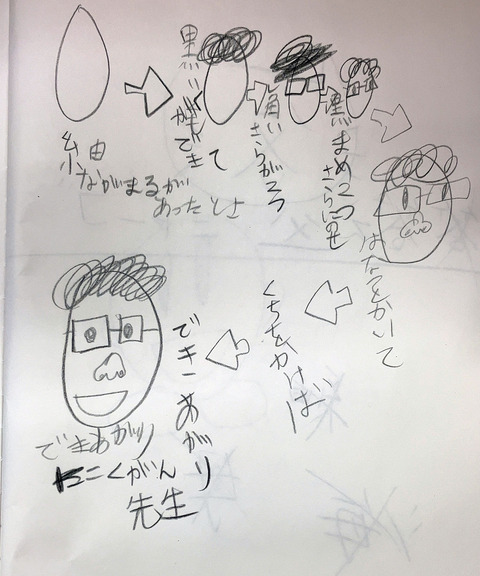 糸由
ながまるが
あったとさ
黒い
できて
角い
さらが2つ
黒まめ2つ
さらにのせ
はなをかいて
くちをかけば
できーあがり
できあがり
くがん
先生